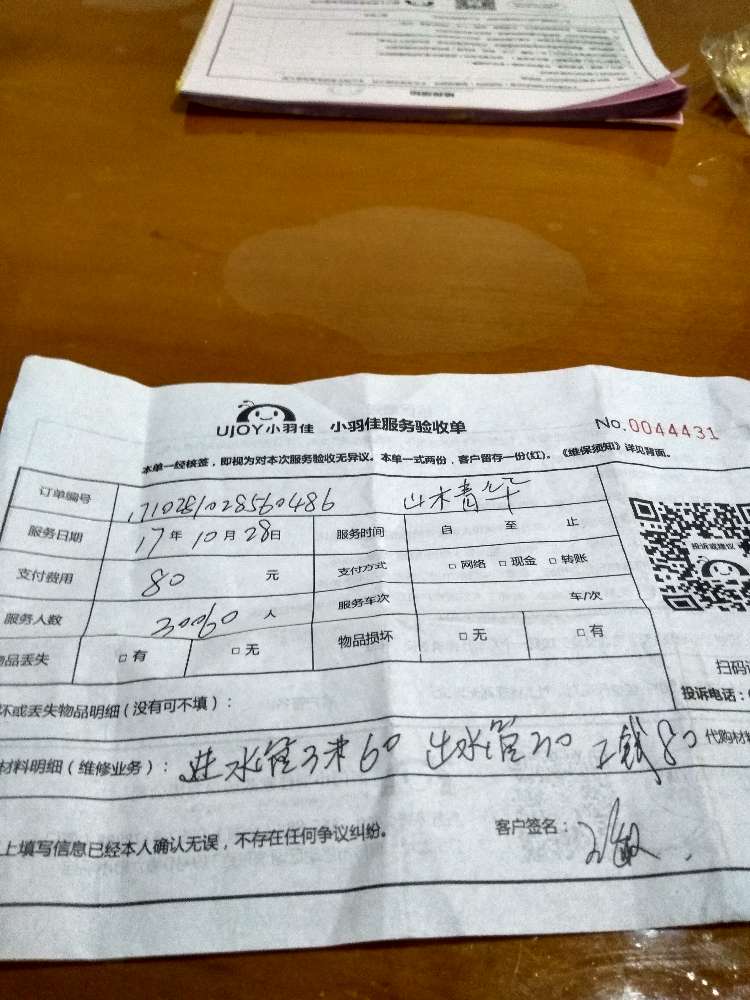 UJOY小羽佳 小羽佳服务验收单 No.0044431
本单一经核签，即视为对本次服务验收无异议。本单一式两份，客户留存一份(红)。《维保须知》详见背面。
订单编号 1710281028560486 山木青华
服务日期 17年10月28日 服务时间 自 至 止
投诉或建议
支付费用 80 元 支付方式 □网络 □现金 □转账
服务人数 人 服务车次 车/次
品丢失 □有 □无 物品损坏 □无 □有
扫码
坏或丢失物品明细（没有可不填）： 投诉电话：
材料明细（维修业务）： 进水管3米60 出水管 工钱80 代购材料
上填写信息已经本人确认无误，不存在任何争议纠纷。 客户签名：